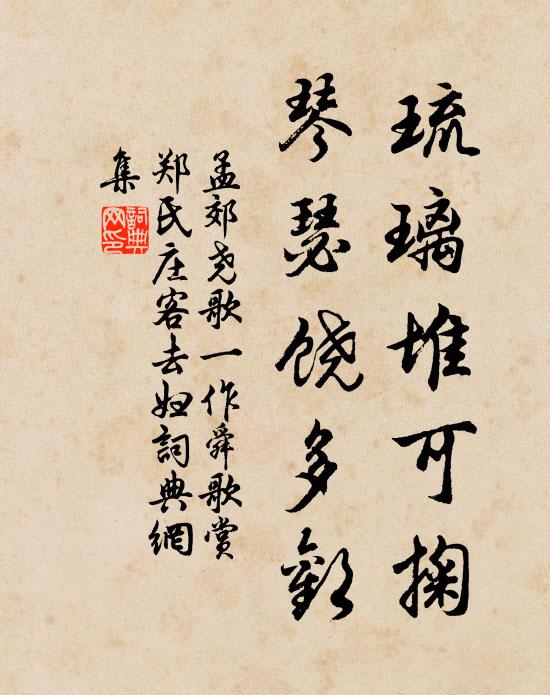 琉璃堆可掬
琴瑟饶多歡
孟郊尧歌一作舜歌赏
郑氏庄客去妇詞典網
集
詞典
网印